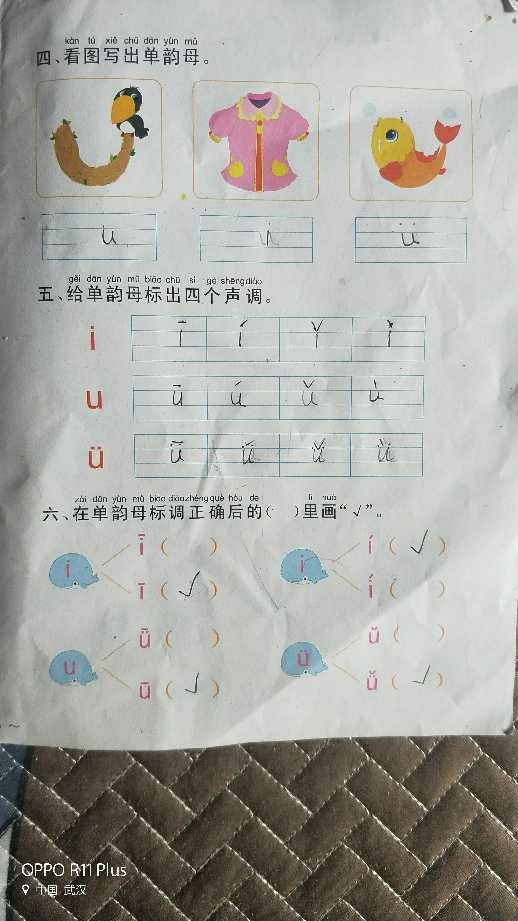 kàn tú xiě chū dān yùn mǔ
四、看图写出单韵母。
u i ü
gěi dān yùn mǔ biāo chū sì gè shēng diào
五、给单韵母标出四个声调。
i ī í ǐ ì
u ū ú ǔ ù
ü ǖ ǘ ǚ ǜ
zài dān yùn mǔ biāo diào zhèng què hòu de lǐ huà
六、在单韵母标调正确后的( )里画“√”。
i ( ) í ( √ )
i i
ī ( √ ) ( )
ǖ ( ) ǔ ( )
u ü
ū ( √ ) ǚ ( √ )
OPPO R11 Plus
中国 武汉